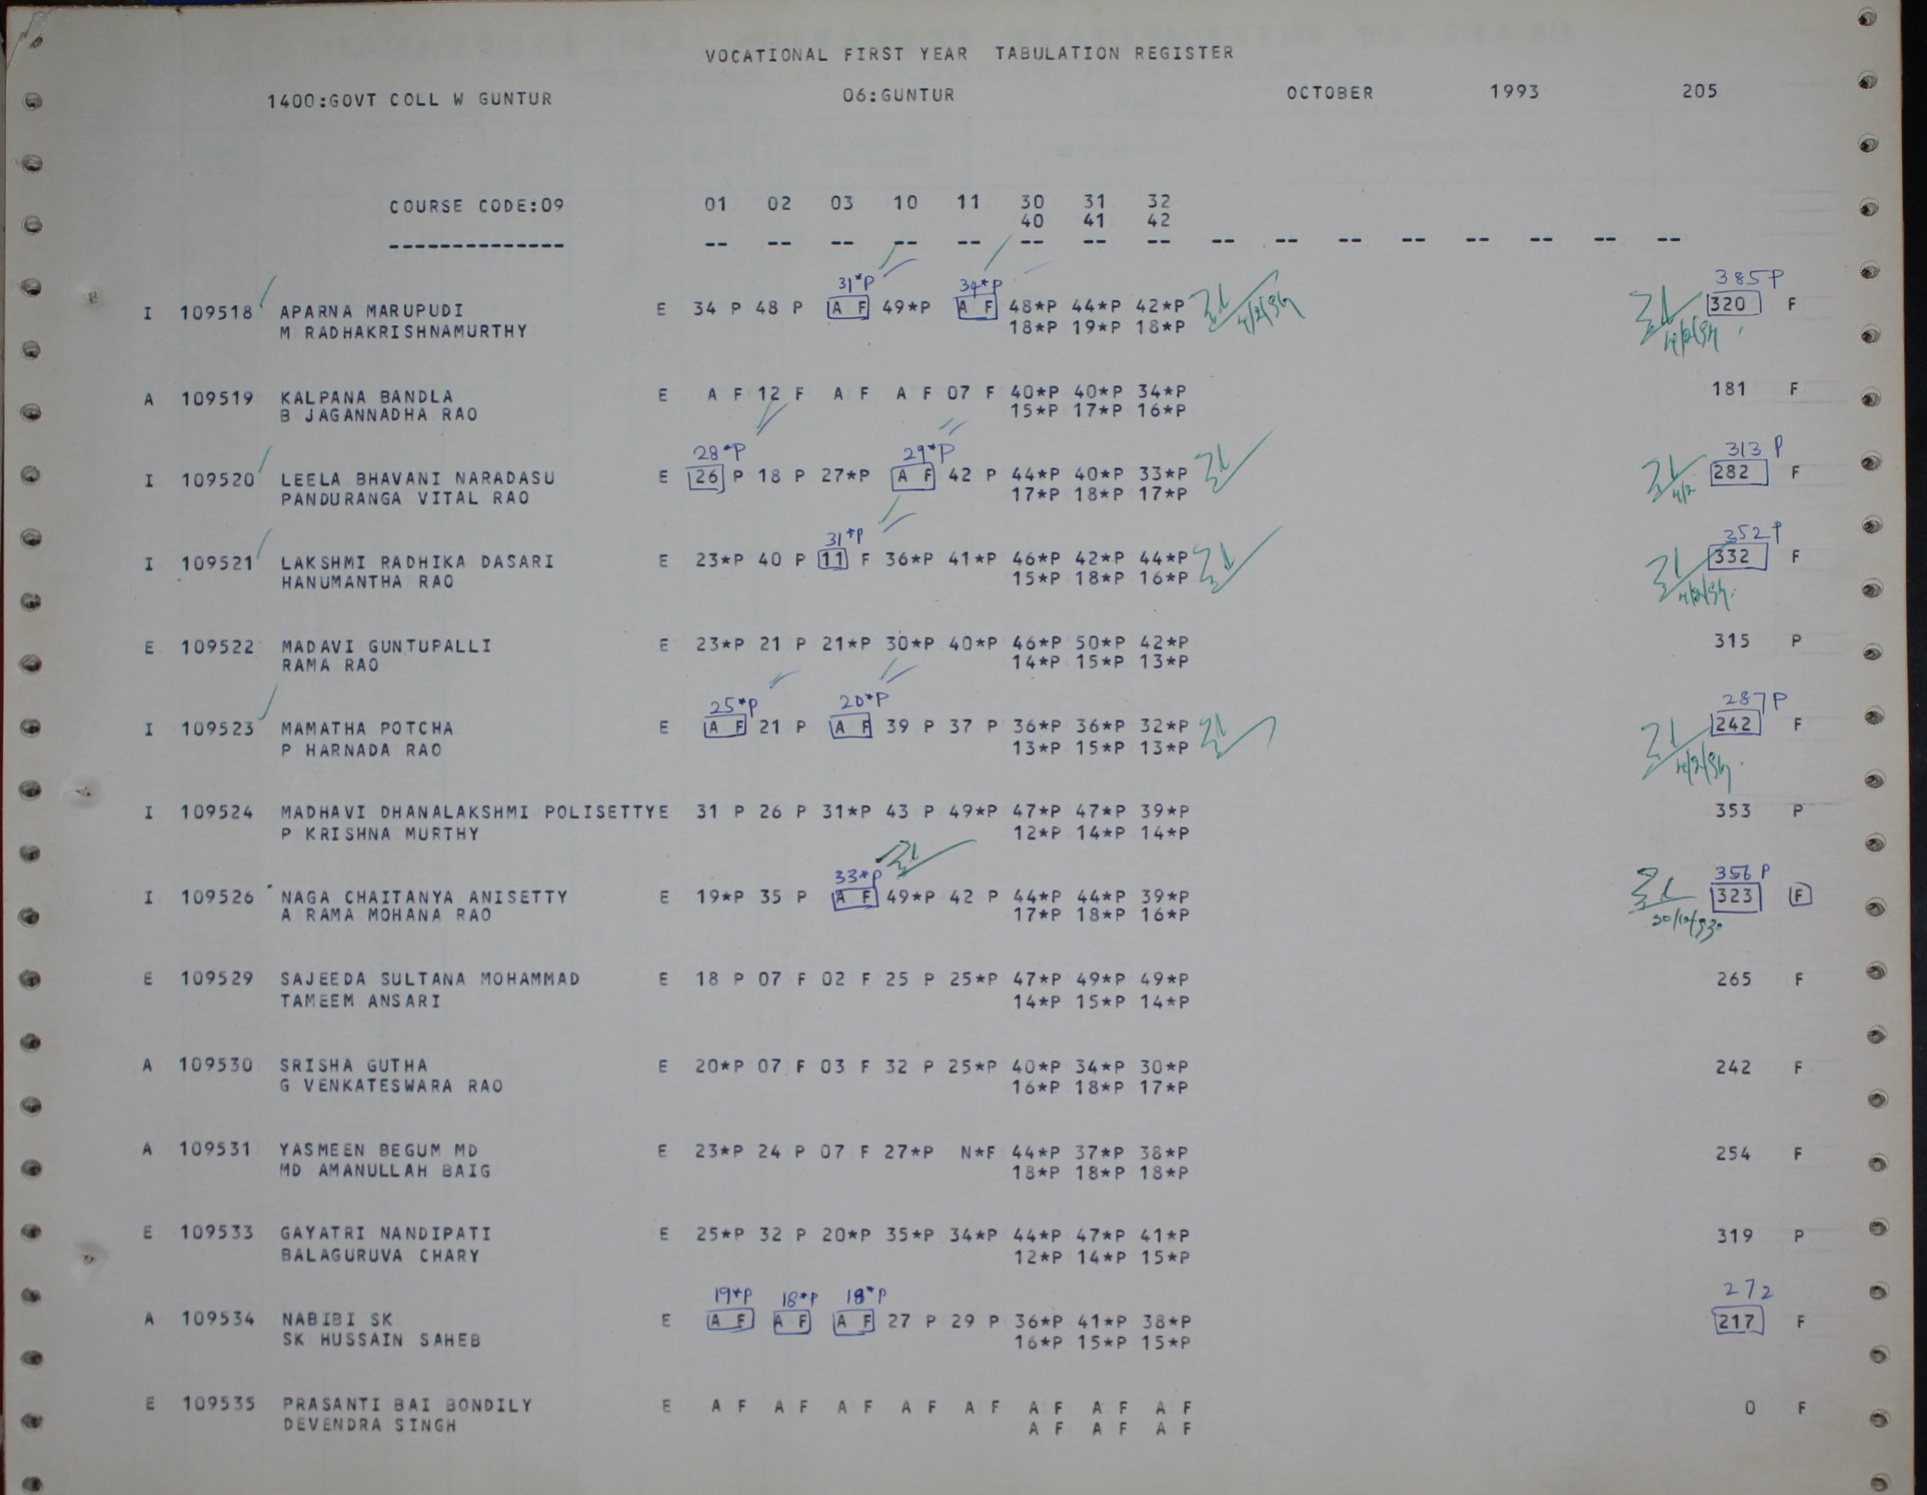 VOCATIONAL FIRST YEAR TABULATION REGISTER
1400:GOVT COLL W GUNTUR 06:GUNTUR OCTOBER 1993 205
COURSE CODE:09 01 02 03 10 11 30 31 32
40 41 42
-------------- -- -- -- -- -- -- -- -- -- -- -- -- -- -- -- --
31*P 34*P 385 P
I 109518 APARNA MARUPUDI E 34 P 48 P A F 49*P A F 48*P 44*P 42*P 4/2/94 320 F
M RADHAKRISHNAMURTHY 18*P 19*P 18*P 4/2/94
A 109519 KALPANA BANDLA E A F 12 F A F A F 07 F 40*P 40*P 34*P 181 F
B JAGANNADHA RAO 15*P 17*P 16*P
28*P 29*P 313 P
I 109520 LEELA BHAVANI NARADASU E 26 P 18 P 27*P A F 42 P 44*P 40*P 33*P 4/2 282 F
PANDURANGA VITAL RAO 17*P 18*P 17*P
31*P 352 P
I 109521 LAKSHMI RADHIKA DASARI E 23*P 40 P 11 F 36*P 41*P 46*P 42*P 44*P 332 F
HANUMANTHA RAO 15*P 18*P 16*P 4/2/94
E 109522 MADAVI GUNTUPALLI E 23*P 21 P 21*P 30*P 40*P 46*P 50*P 42*P 315 P
RAMA RAO 14*P 15*P 13*P
25*P 20*P 287 P
I 109523 MAMATHA POTCHA E A F 21 P A F 39 P 37 P 36*P 36*P 32*P 242 F
P HARNADA RAO 13*P 15*P 13*P 4/2/94
I 109524 MADHAVI DHANALAKSHMI POLISETTYE 31 P 26 P 31*P 43 P 49*P 47*P 47*P 39*P 353 P
P KRISHNA MURTHY 12*P 14*P 14*P
33*P 356 P
I 109526 NAGA CHAITANYA ANISETTY E 19*P 35 P A F 49*P 42 P 44*P 44*P 39*P 323 F
A RAMA MOHANA RAO 17*P 18*P 16*P 30/12/93
E 109529 SAJEEDA SULTANA MOHAMMAD E 18 P 07 F 02 F 25 P 25*P 47*P 49*P 49*P 265 F
TAMEEM ANSARI 14*P 15*P 14*P
A 109530 SRISHA GUTHA E 20*P 07 F 03 F 32 P 25*P 40*P 34*P 30*P 242 F
G VENKATESWARA RAO 16*P 18*P 17*P
A 109531 YASMEEN BEGUM MD E 23*P 24 P 07 F 27*P N*F 44*P 37*P 38*P 254 F
MD AMANULLAH BAIG 18*P 18*P 18*P
E 109533 GAYATRI NANDIPATI E 25*P 32 P 20*P 35*P 34*P 44*P 47*P 41*P 319 P
BALAGURUVA CHARY 12*P 14*P 15*P
19*P 18*P 18*P 272
A 109534 NABIBI SK E A F A F A F 27 P 29 P 36*P 41*P 38*P 217 F
SK HUSSAIN SAHEB 16*P 15*P 15*P
E 109535 PRASANTI BAI BONDILY E A F A F A F A F A F A F A F A F 0 F
DEVENDRA SINGH A F A F A F